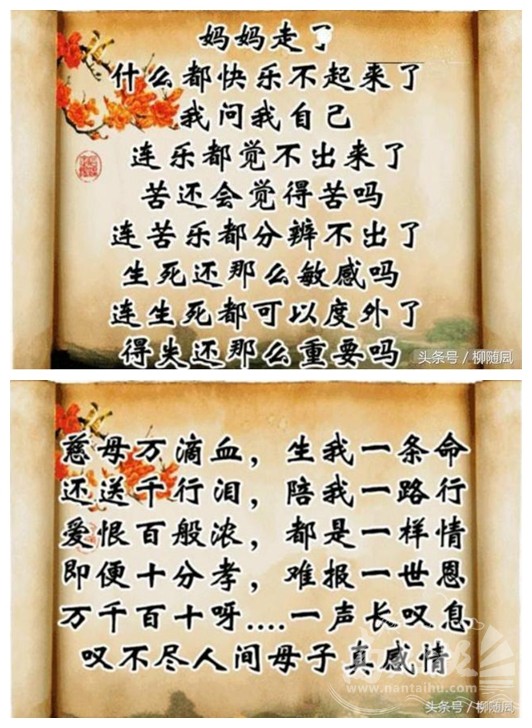 妈妈走了
什么都快乐不起来了
我问我自己
连乐都觉不出来了
苦还会觉得苦吗
连苦乐都分辨不出了
生死还那么敏感吗
连生死都可以度外了
得失还那么重要吗
头条号 / 柳随风
慈母万滴血，生我一条命
还送千行泪，陪我一路行
爱恨百般浓，都是一样情
即便十分孝，难报一世恩
万千百十呀....一声长叹息
叹不尽人间母子真感情
www.nantaihu.com
头条号 / 柳随风